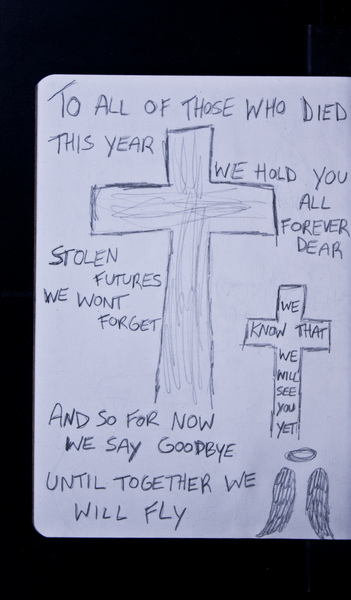 TO ALL OF THOSE WHO DIED
THIS YEAR
WE HOLD YOU
ALL
FOREVER
DEAR
STOLEN
FUTURES
WE WONT
FORGET
WE
KNOW THAT
WE
WILL
SEE
YOU
YET
AND SO FOR NOW
WE SAY GOODBYE
UNTIL TOGETHER WE
WILL FLY